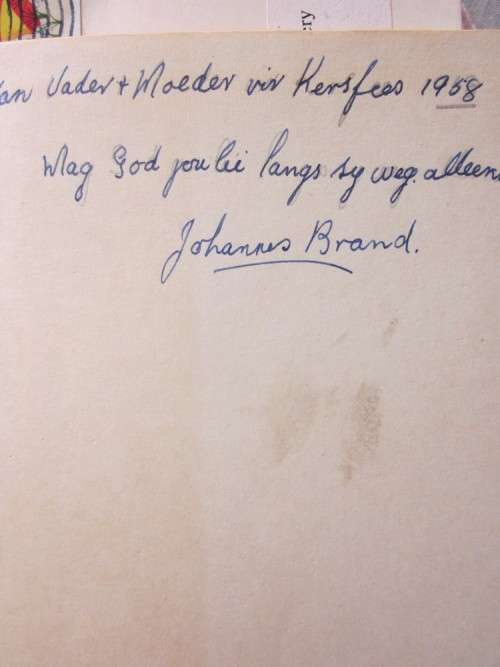 ry
Van Vader + Moeder vir Kersfees 1958
Mag God jou lei langs sy weg alleen
Johannes Brand.